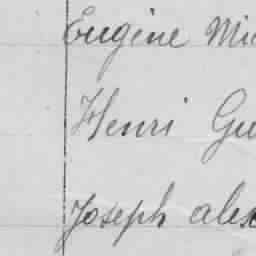 Eugène Mi
Henri Gu
Joseph alex